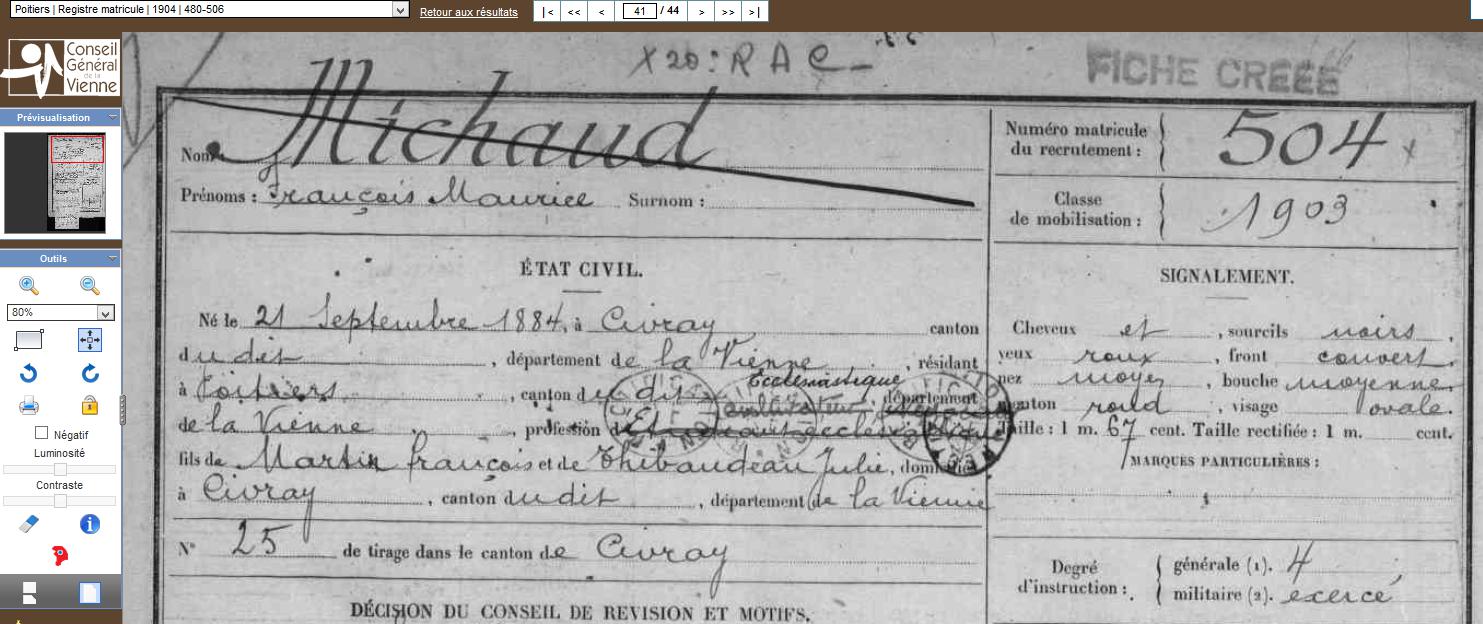 Poitiers | Registre matricule | 1904 | 480-506
Retour aux résultats
|< << < 41 / 44 > >> >|
Conseil
Général
de la
Vienne
Prévisualisation
Outils
80%
Négatif
Luminosité
Contraste
X 20: R A C -
FICHE CRÉÉE
Nom: Michaud
Prénoms : François Maurice Surnom :
Numéro matricule
du recrutement : 504
Classe
de mobilisation : 1903
ÉTAT CIVIL.
Né le 21 Septembre 1884, à Civray canton
dudit, département de la Vienne, résidant
à Poitiers, canton dudit, département
Ecclésiastique
de la Vienne, profession d
fils de Martin françois et de Thibaudeau Julie, domicilié
à Civray, canton dudit, département de la Vienne
N° 25 de tirage dans le canton de Civray
DÉCISION DU CONSEIL DE REVISION ET MOTIFS.
SIGNALEMENT.
Cheveux et, sourcils noirs,
yeux roux, front couvert,
nez moyen, bouche moyenne,
menton rond, visage ovale.
Taille : 1 m. 67 cent. Taille rectifiée : 1 m. cent.
MARQUES PARTICULIÈRES :
Degré
d'instruction :
générale (1). 4
militaire (2). exercé